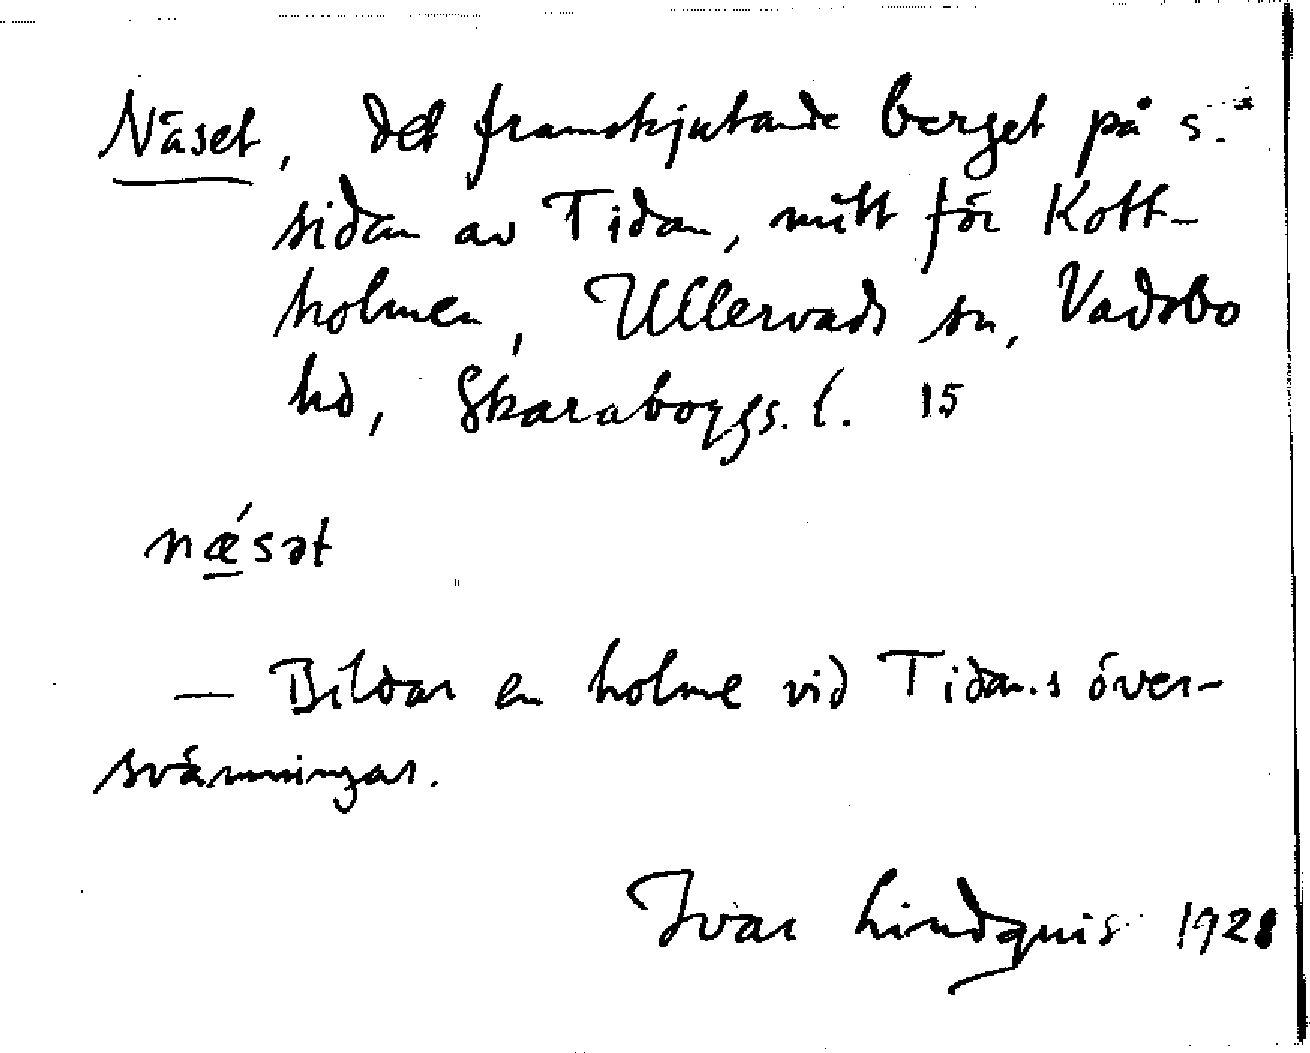 Näset, det framskjutande berget på s.
sidan av Tidan, mitt för Kott-
holmen, Ullervads sn, Vadsbo
hd, Skaraborgs l. 15
nǽ̲sət
— Bildar en holme vid Tidans över-
svämningar.
Ivar Lindquist 1928